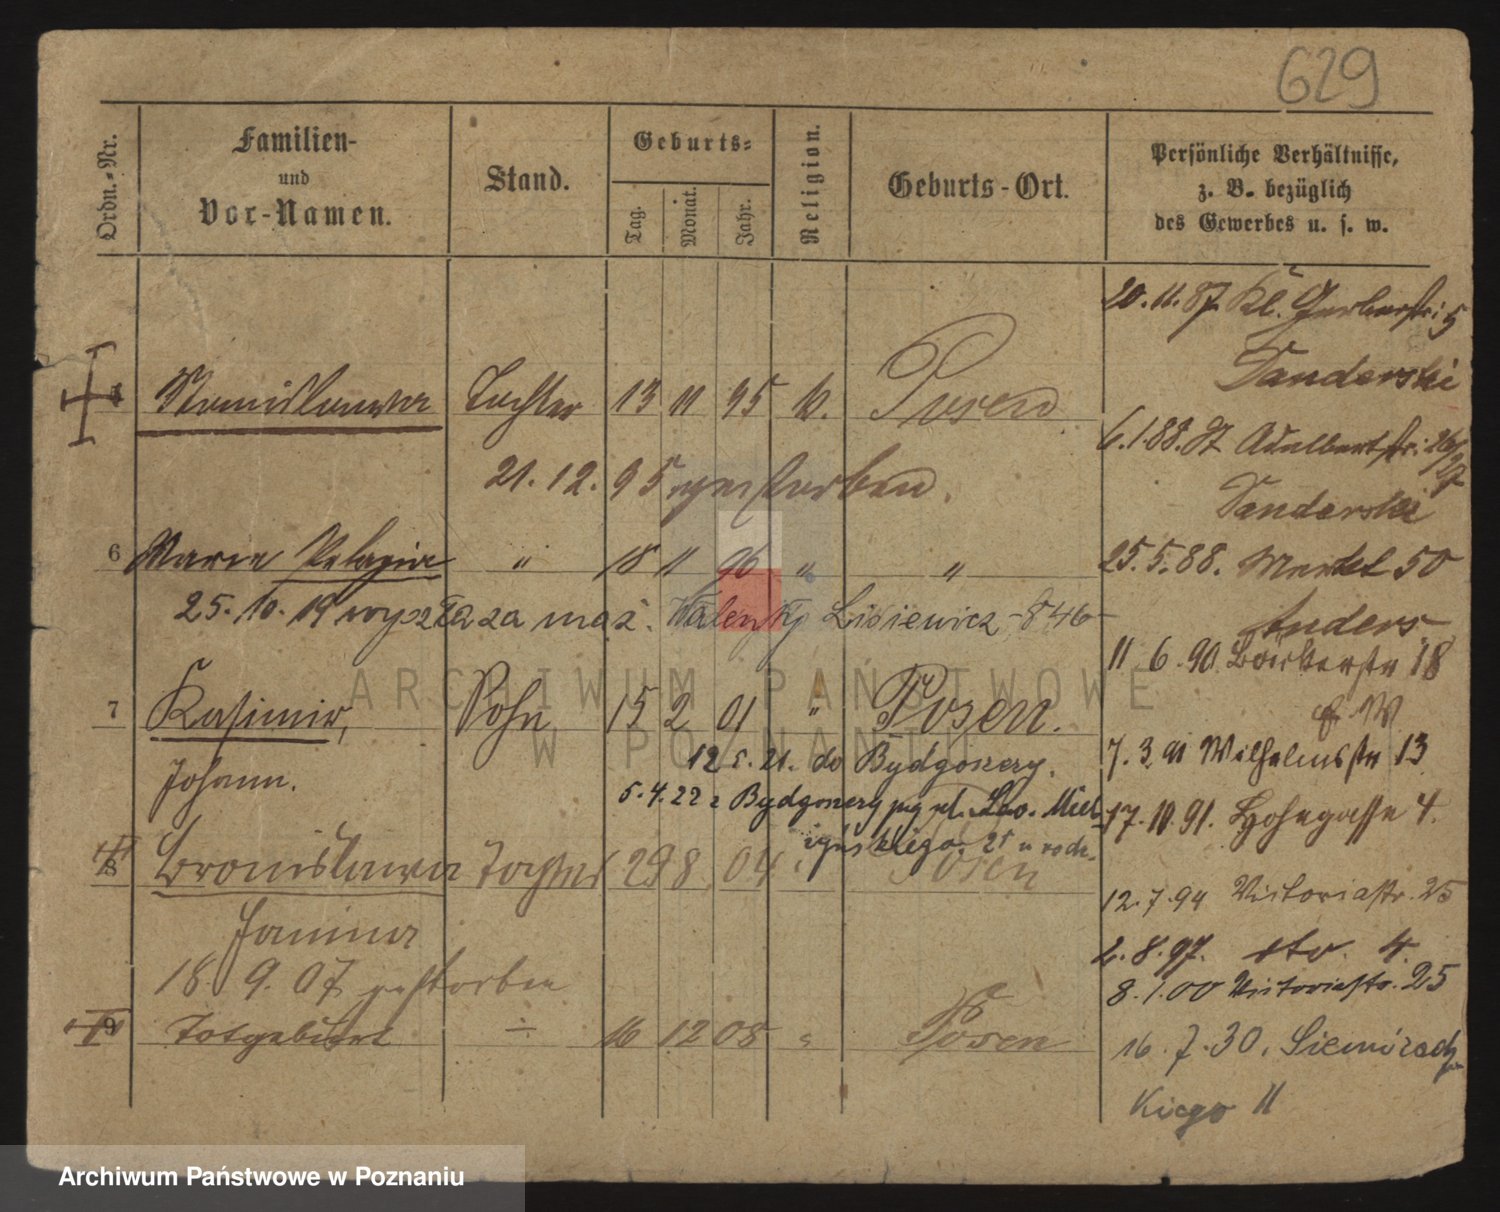 629
Ordn.-Nr.
Familien-
und
Vor-Namen.
Stand.
Geburts-
Tag.
Monat.
Jahr.
Religion.
Geburts-Ort.
Persönliche Verhältnisse,
z. B. bezüglich
des Gewerbes u. s. w.
Stanislawa Tochter 13 11 95 k. Posen
21.12.95 gestorben.
6 Marie Pelagia " 18 11 96 " "
25.10.19 wyszła za mąż. Walenty Lisiewicz -846-
7 Kasimir, Sohn 15 2 01 " Posen.
Johann.
12 5. 21. do Bydgoszczy.
5.4.22 z Bydgoszczy
Bronislawa Tochter 29 8 04 Posen
Janina
18. 9. 07 gestorben
9 Totgeburt ÷ 16 12 08 " Posen
20.11.87. Kl. Gerberstr: 5
Sanderski
6.1.88. St Adalbertstr: 26/27
Sanderski
25.5.88. Markt 50
Anders
11 6.90. Bäckerstr 18
7. 3. 91 Wilhelmstr 13
17.10.91. Hohegasse 4.
12.7.94 Victoriastr. 25
2.8.97. dto. 4.
8.1.00 Victoriastr. 25
16.7.30. Siemiradz-
kiego 11
ARCHIWUM PAŃSTWOWE
W POZNANIU
Archiwum Państwowe w Poznaniu